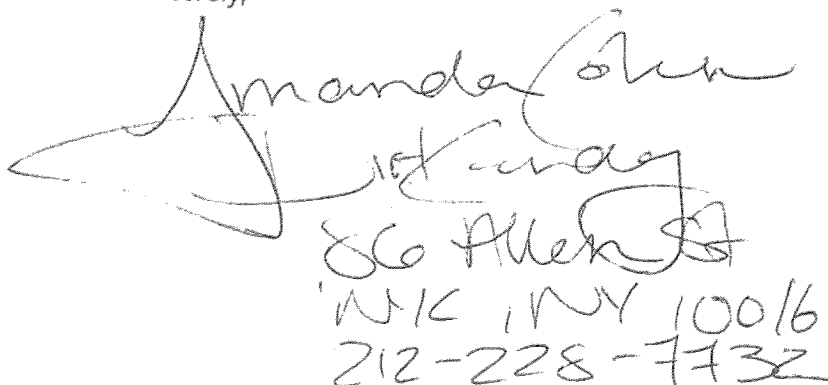 Amanda Cohen
Dirt Candy
86 Allen St
NYC, NY 10016
212-228-7732